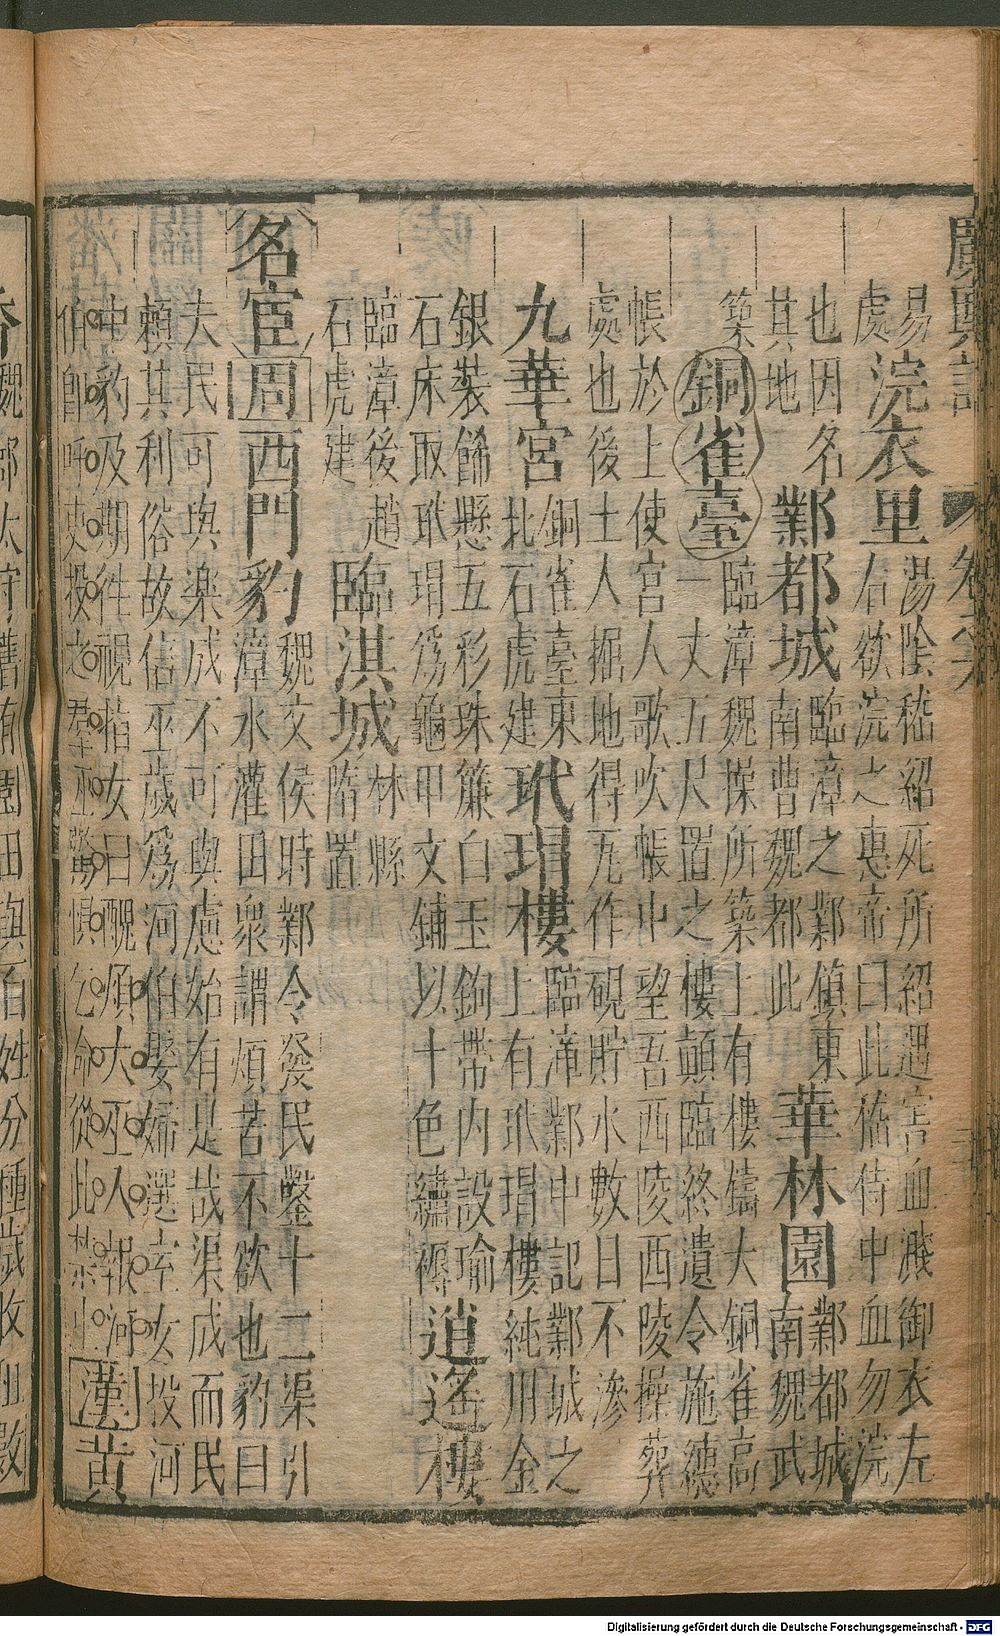 廣輿記 卷六
易處 浣衣里 湯陰嵇紹死所紹遇害血濺御衣左右欲浣之惠帝曰此嵇侍中血勿浣
也因名其地 鄴都城 臨漳之鄴鎮東南曹魏都此 華林園 鄴都城南魏武
築 銅雀臺 臨漳魏操所築上有樓鑄大銅雀高一丈五尺置之樓顛臨終遺令施繐
帳於上使宮人歌吹帳中望吾西陵西陵操葬處也後土人掘地得瓦作硯貯水數日不滲
九華宮 銅雀臺東北石虎建 玳瑁樓 臨漳鄴中記鄴城之上有玳瑁樓純用金
銀裝餙懸五彩珠簾白玉鉤帶内設瑜石床取玳瑁爲龜甲文鋪以十色繡褥 逍遙樓
臨漳後趙石虎建 臨淇城 林縣隋置
名宦 周 西門豹 魏文侯時鄴令發民鑿十二渠引漳水灌田衆謂煩苦不欲也豹曰
夫民可與楽成不可與慮始有是哉渠成而民賴其利俗故信巫歲爲河伯娶婦選室女投河
中豹及期徃視指女曰醜煩大巫入報河伯即呼吏投之羣巫驚懼乞命從此禁止 漢 黃
魏郡太守舊有園田與百姓分種歲收租數
Digitalisierung gefördert durch die Deutsche Forschungsgemeinschaft - DFG